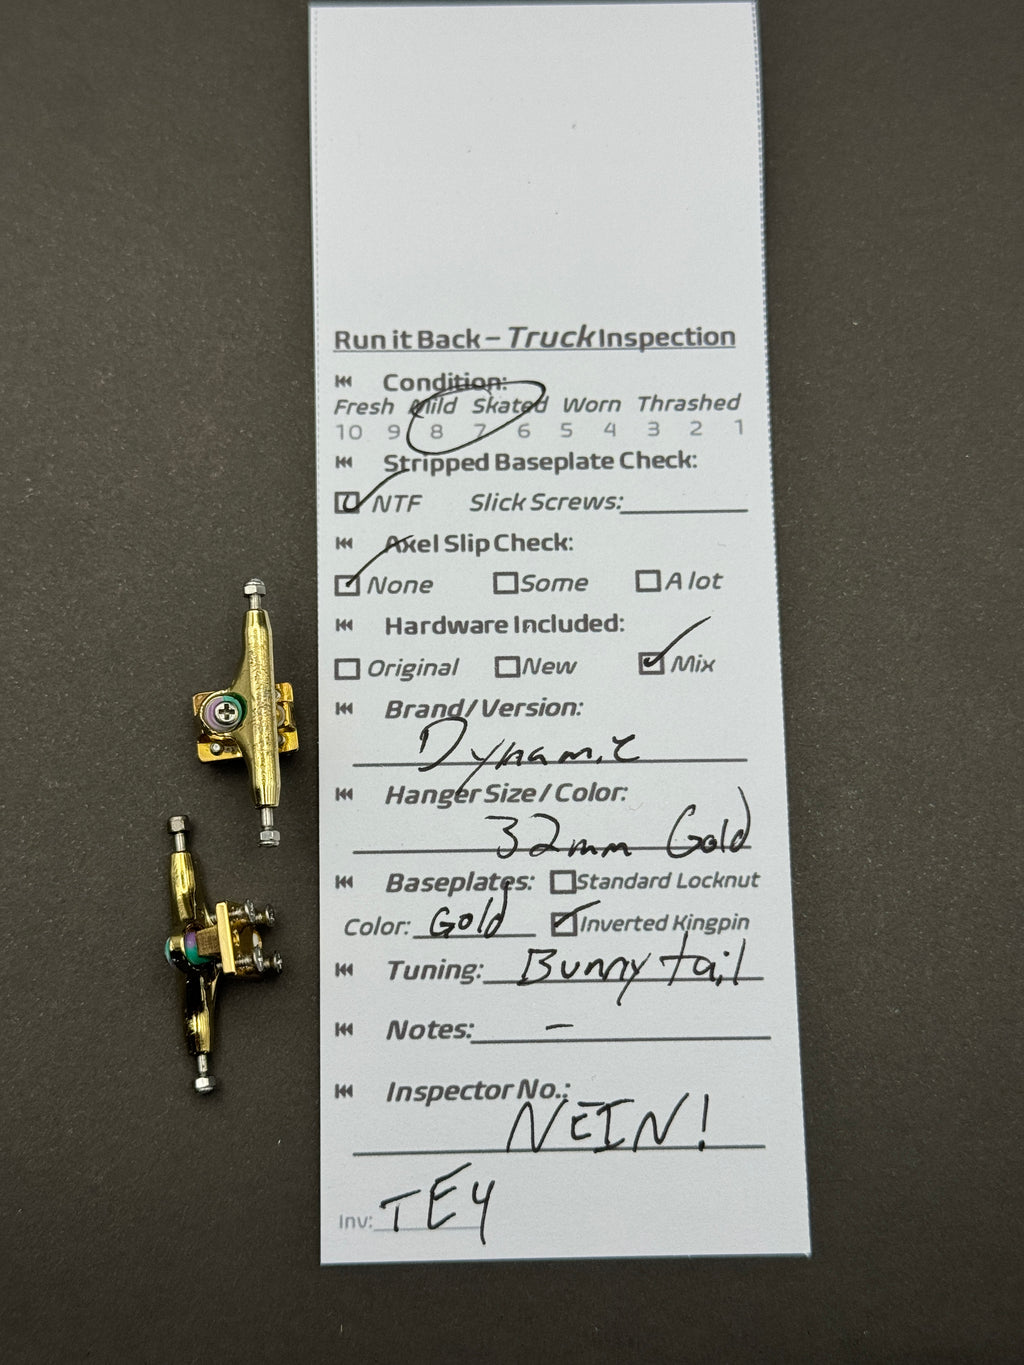 Run it Back – Truck Inspection
Condition:
Fresh Mild Skated Worn Thrashed
10 9 8 7 6 5 4 3 2 1
Stripped Baseplate Check:
NTF Slick Screws:
Axel Slip Check:
None Some A lot
Hardware Included:
Original New Mix
Brand/Version:
Dynamic
Hanger Size/Color:
32mm Gold
Baseplates: Standard Locknut
Color: Gold Inverted Kingpin
Tuning: Bunny tail
Notes: –
Inspector No.:
NEIN!
Inv: TE4